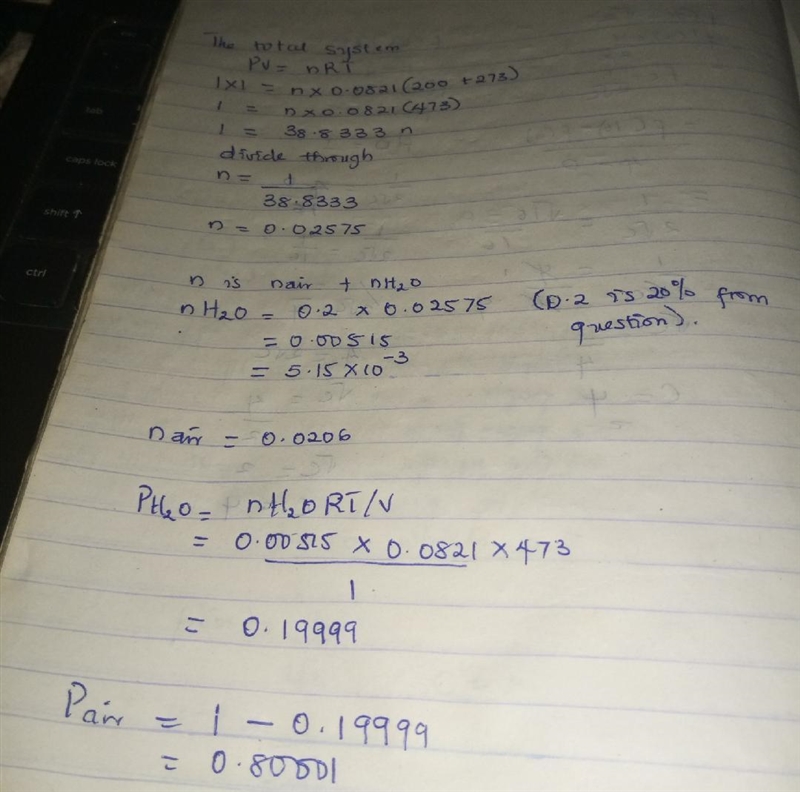 tab
caps lock
shift ↑
ctrl
The total system
PV = nRT
1x1 = n x 0.0821 (200 + 273)
1 = n x 0.0821 (473)
1 = 38.8333 n
divide through
n = 1
38.8333
n = 0.02575
n is nair + nH₂O
nH₂O = 0.2 x 0.02575 (0.2 is 20% from
question).
= 0.00515
= 5.15 x 10⁻³
nair = 0.0206
PH₂O = nH₂O RT/V
= 0.00515 x 0.0821 x 473
1
= 0.19999
Pair = 1 - 0.19999
= 0.80001